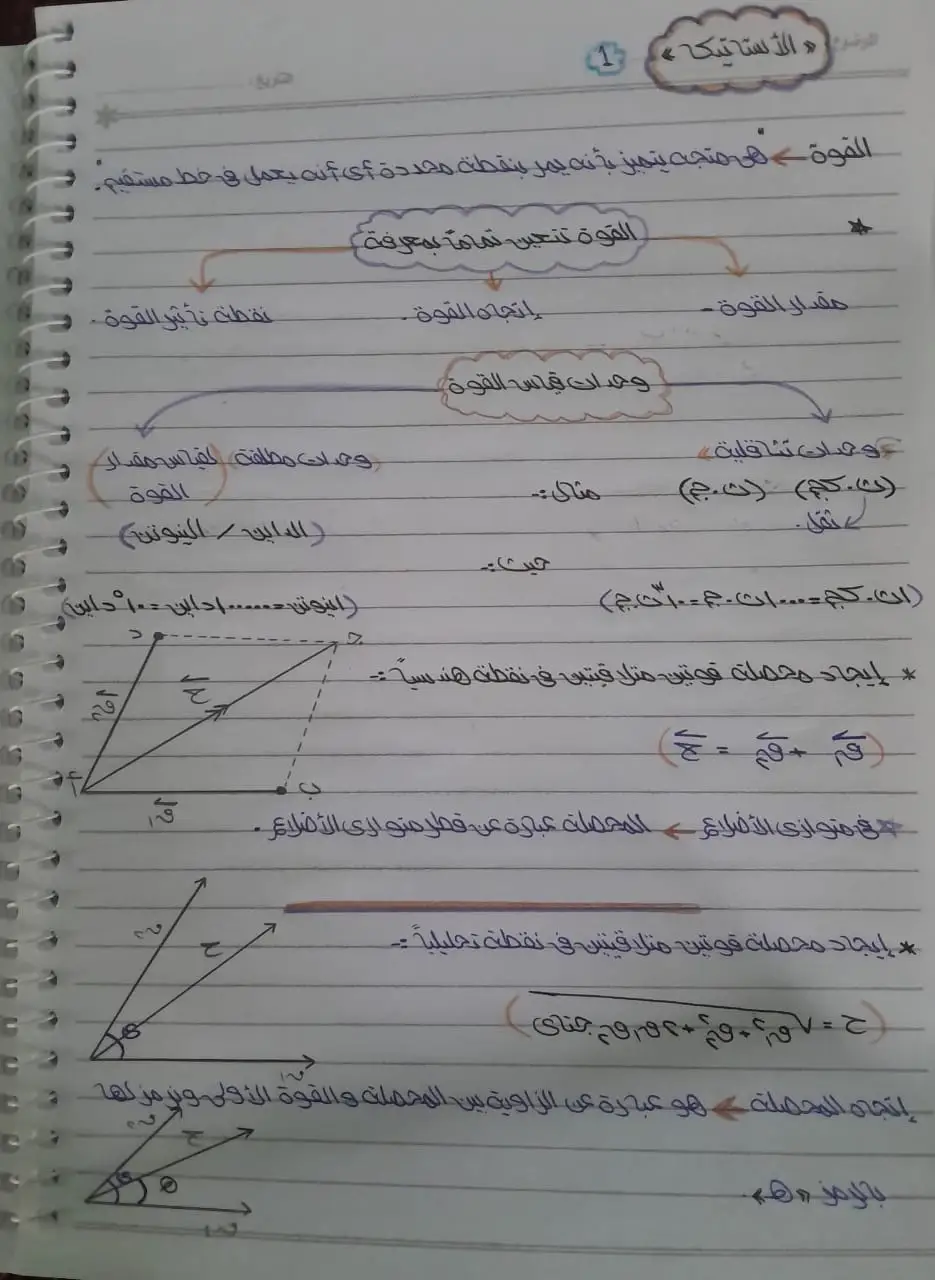 « الأستاتيكا » 1
القوة ← "هى متجه يتميز بأنه يمر بنقطة محددة أى أنه يعمل فى خط مستقيم".
* القوة تتعين تماماً بمعرفة
مقدار القوة - إتجاه القوة . نقطة تأثير القوة .
وحدات قياس القوة
«وحدات تثاقلية» وحدات مطلقة (لقياس مقدار القوة)
(ث.كجم) (ث.جم) مثال :- (الداين / النيوتن)
ثقل.
حيث :-
(١ث.كجم = ١٠٠٠ث.جم = ١٠^٣ث.جم) (١نيوتن = ١٠٠٠٠٠داين = ١٠^٥داين)
* إيجاد محصلة قوتين متلاقيتين فى نقطة هندسياً :-
(ق١ + ق٢ = ح)
د ح ق٢ ح أ ق١ ب
* فى متوازى الأضلاع ← المحصلة عبارة عن قطر متوازى الأضلاع .
* إيجاد محصلة قوتين متلاقيتين فى نقطة تحليلياً :-
(ح = √ق١٢ + ق٢٢ + ٢ق١ق٢ جتاى)
ق٢ ح ى ق١
إتجاه المحصلة ← هو عبارة عن الزاوية بين المحصلة والقوة الأولى ونرمز لها
بالرمز «ه» .
ق٢ ح ى ه ق١